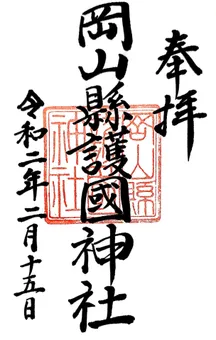 奉拝
岡山縣護國神社
岡山縣
護國
神社
令和二年二月十五日